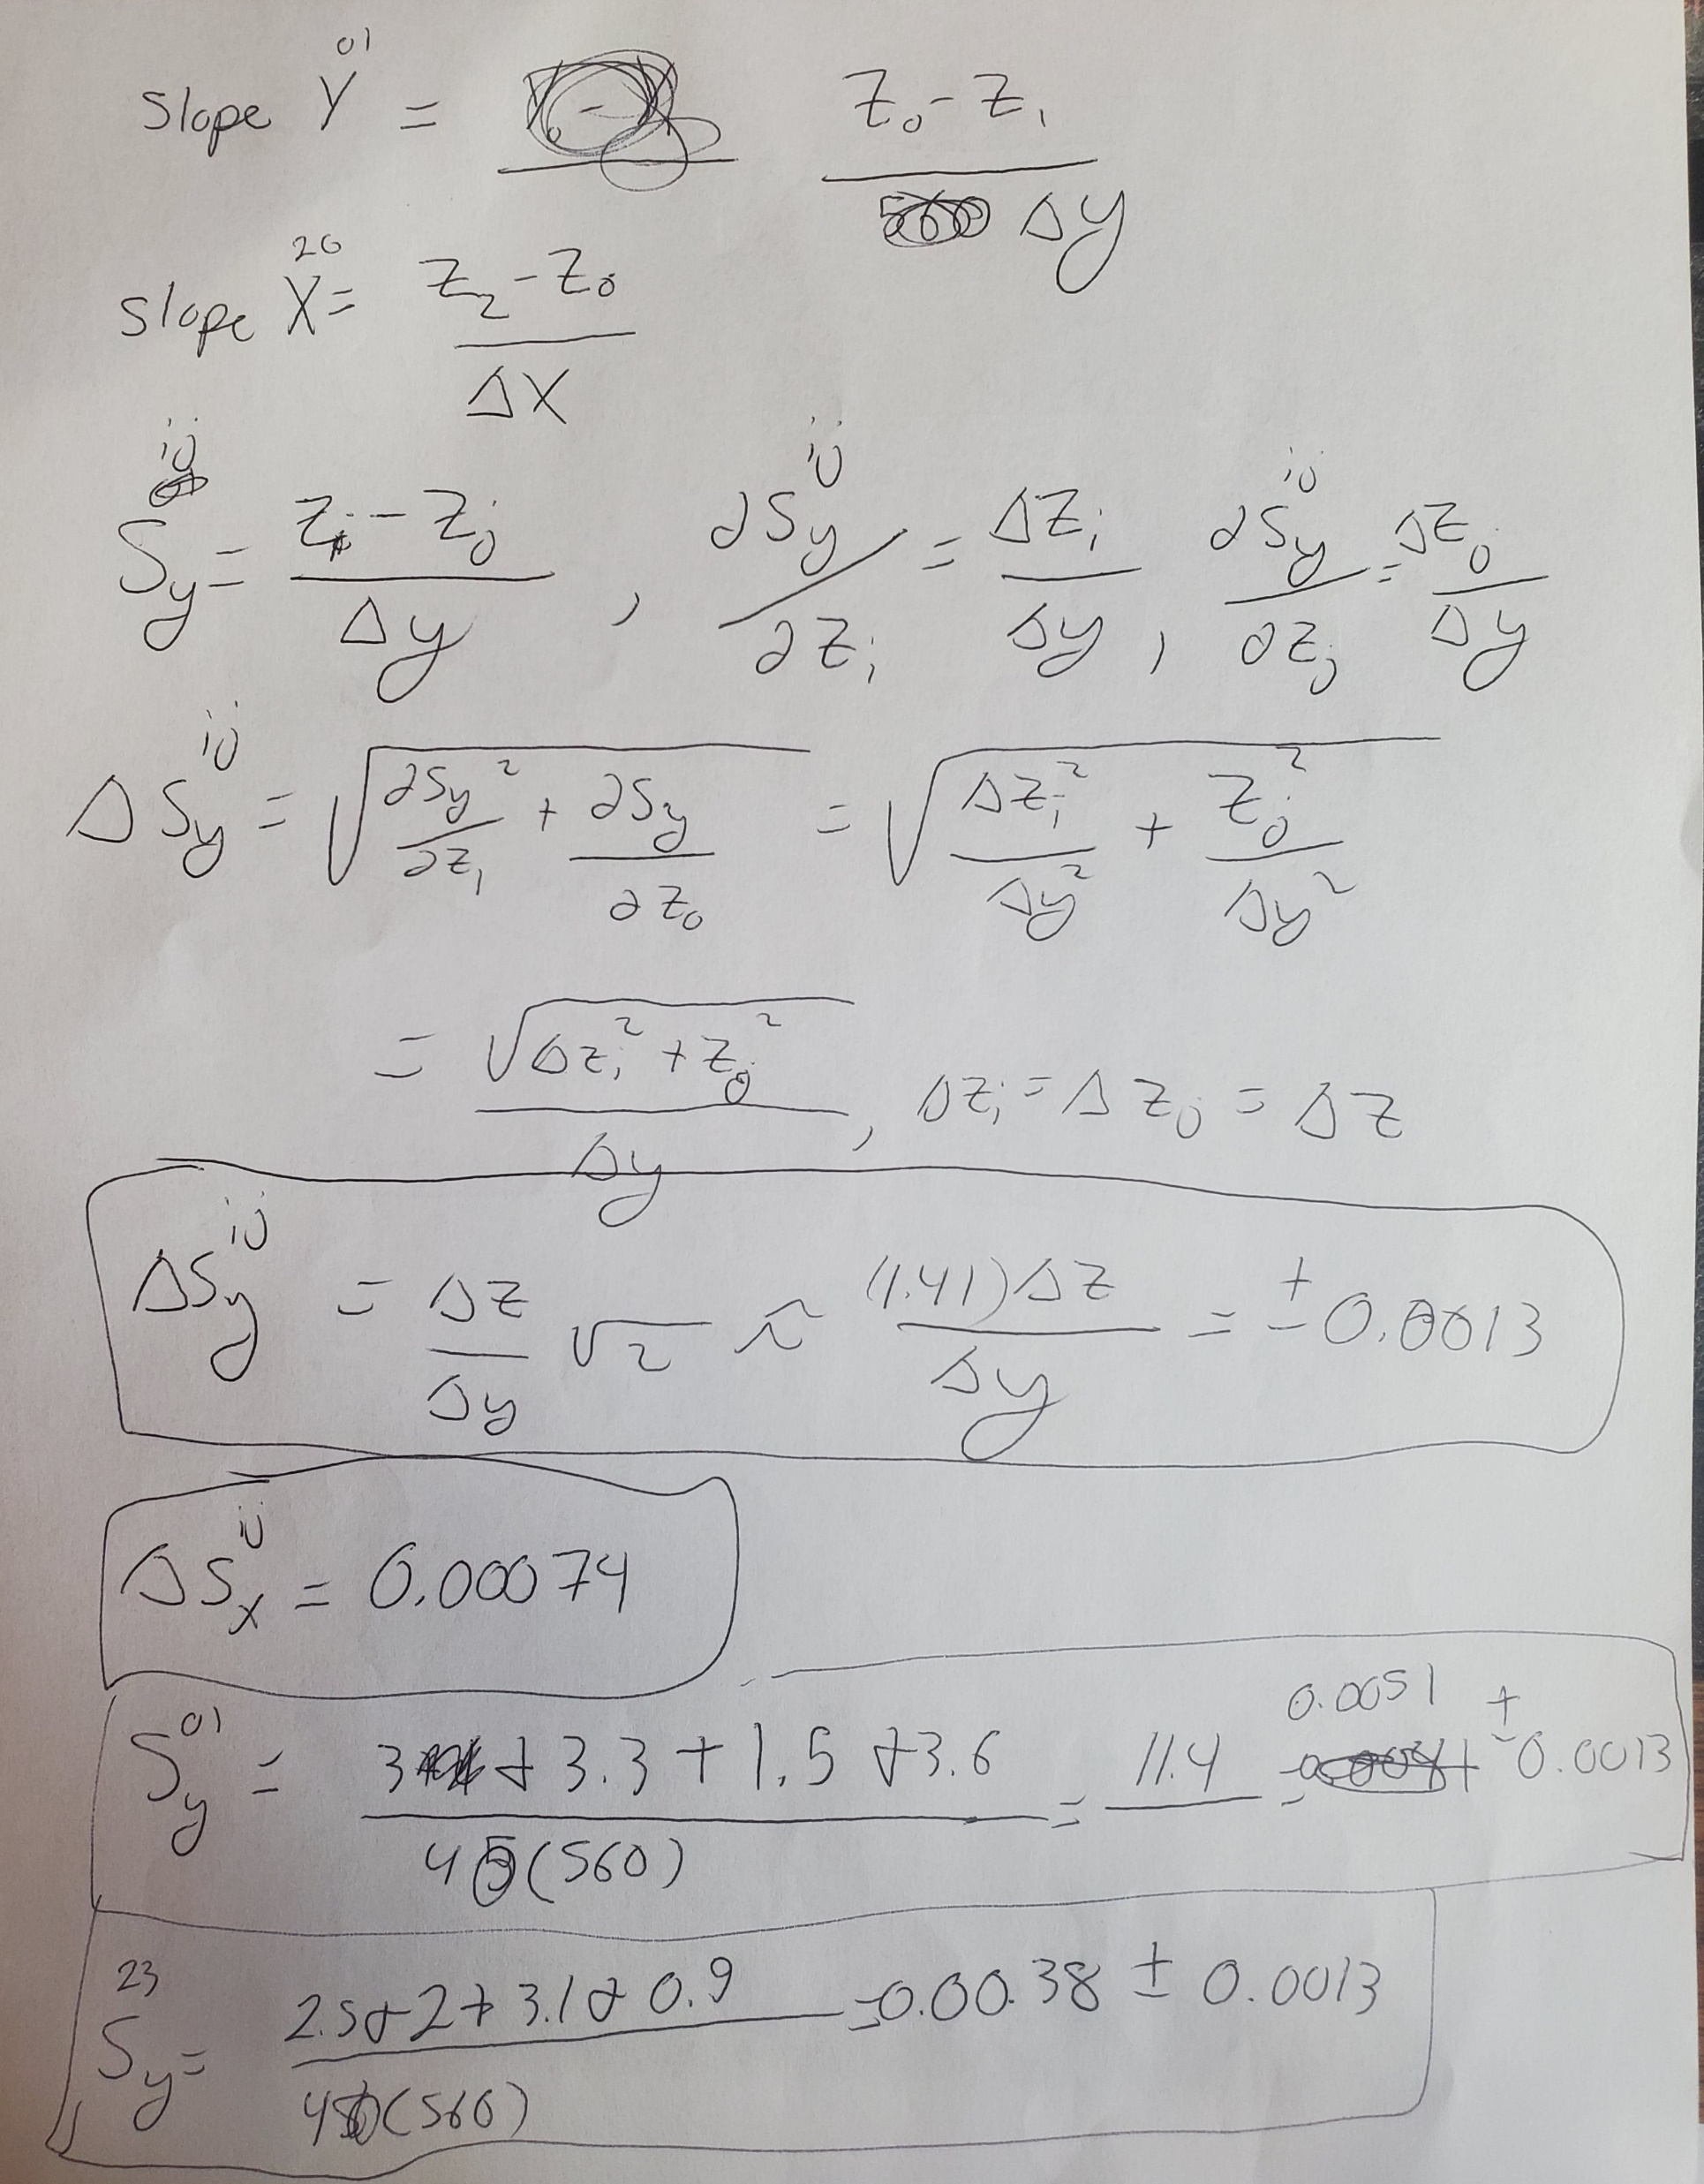 Slope Y^01 = (Z_0 - Z_1)/Δy
Slope X^20 = (Z_2 - Z_0)/ΔX
S_y^ij = (Z_i - Z_j)/Δy , ∂S_y^ij/∂Z_i = ΔZ_i/Δy , ∂S_y^ij/∂Z_j = ΔZ_j/Δy
ΔS_y^ij = √(∂S_y/∂Z_i ² + ∂S_y/∂Z_j) = √(ΔZ_i²/Δy² + Z_j²/Δy²)
= √(ΔZ_i² + Z_j²)/Δy , ΔZ_i = ΔZ_j = ΔZ
ΔS_y^ij = ΔZ/Δy √2 ≈ (1.41)ΔZ/Δy = ± 0.0013
ΔS_x^ij = 0.00074
S_y^01 = (3 + 3.3 + 1.5 + 3.6)/4(560) = 11.4/ = 0.0051 ± 0.0013
S_y^23 = (2.5 + 2 + 3.1 + 0.9)/4(560) = 0.00.38 ± 0.0013